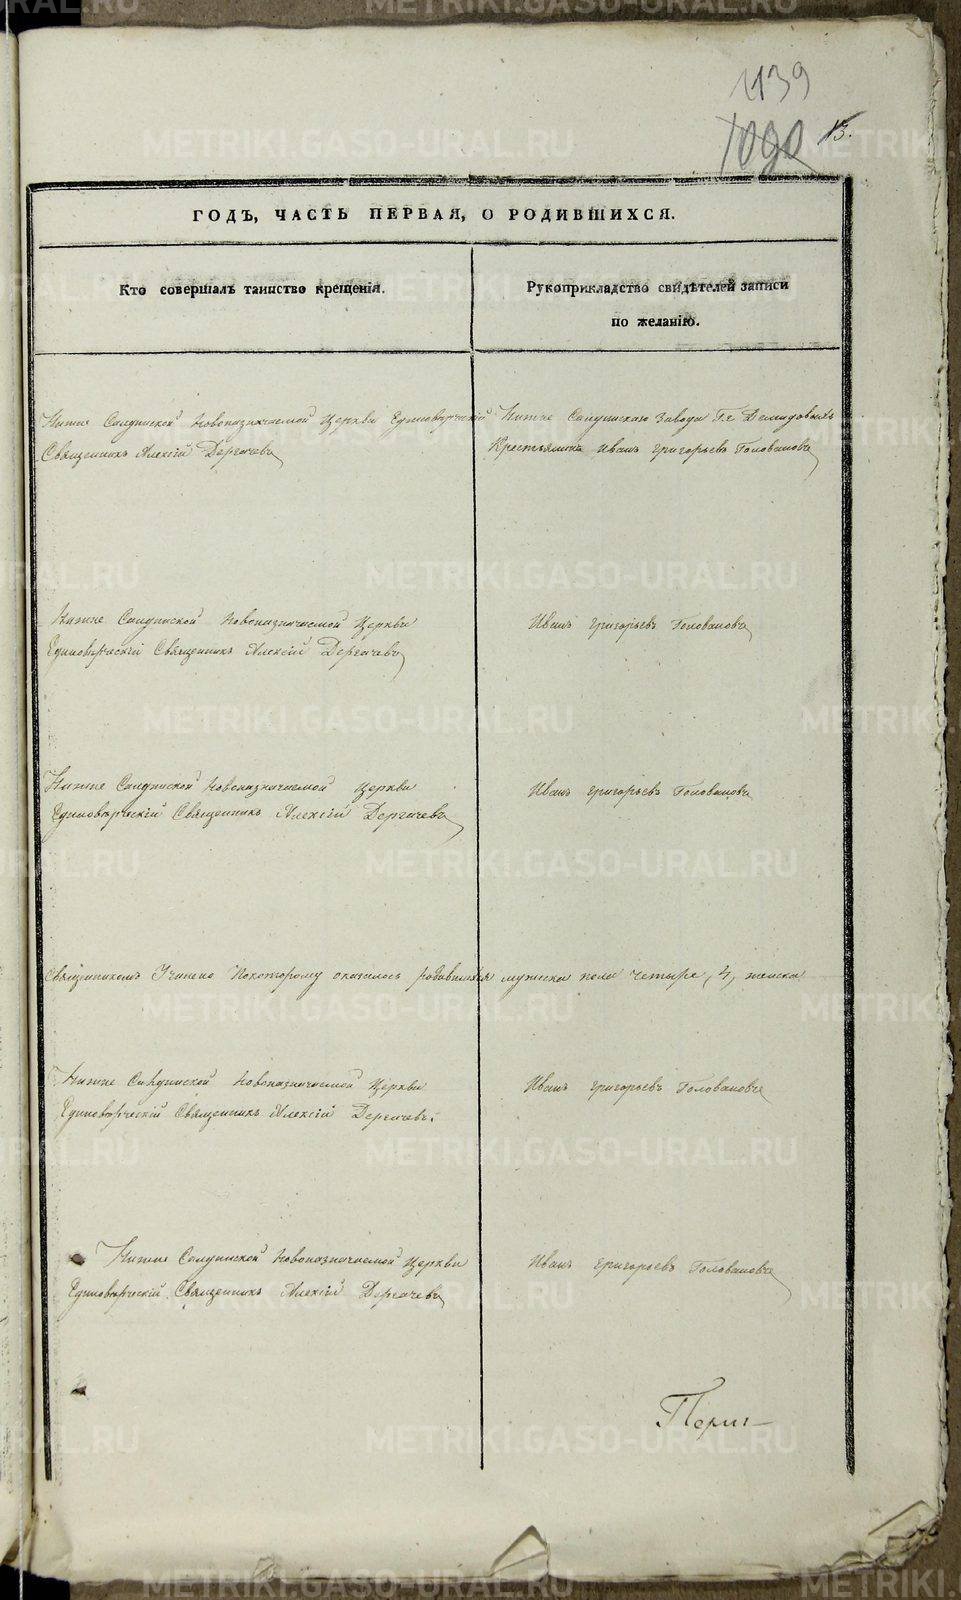 1139
1090 13.
ГОДЪ, ЧАСТЬ ПЕРВАЯ, О РОДИВШИХСЯ.
Кто совершалъ таинство крещенія.
Рукоприкладство свидѣтелей записи
по желанію.
Нижне Салдинской Новоназначаемой Церкви Единовѣрческій
Священникъ Алексій Дергачевъ
Нижне Салдинскаго Завода Г.г Демидовыхъ
Крестьянинъ Иванъ Григорьевъ Головановъ
Нижне Салдинской Новоназначаемой Церкви
Единовѣрческій Священникъ Алексій Дергачевъ
Иванъ Григорьевъ Головановъ
Нижне Салдинской Новоназначаемой Церкви
Единовѣрческій Священникъ Алексій Дергачевъ
Иванъ Григорьевъ Головановъ
Священникомъ Учинено Покоторому оказалось родившихся мужска пола четыре, 4, женска
Нижне Салдинской Новоназначаемой Церкви
Единовѣрческій Священникъ Алексій Дергачевъ.
Иванъ Григорьевъ Головановъ
Нижне Салдинской Новоназначаемой Церкви
Единовѣрческій Священникъ Алексій Дергачевъ
Иванъ Григорьевъ Головановъ
METRIKI.GASO-URAL.RU